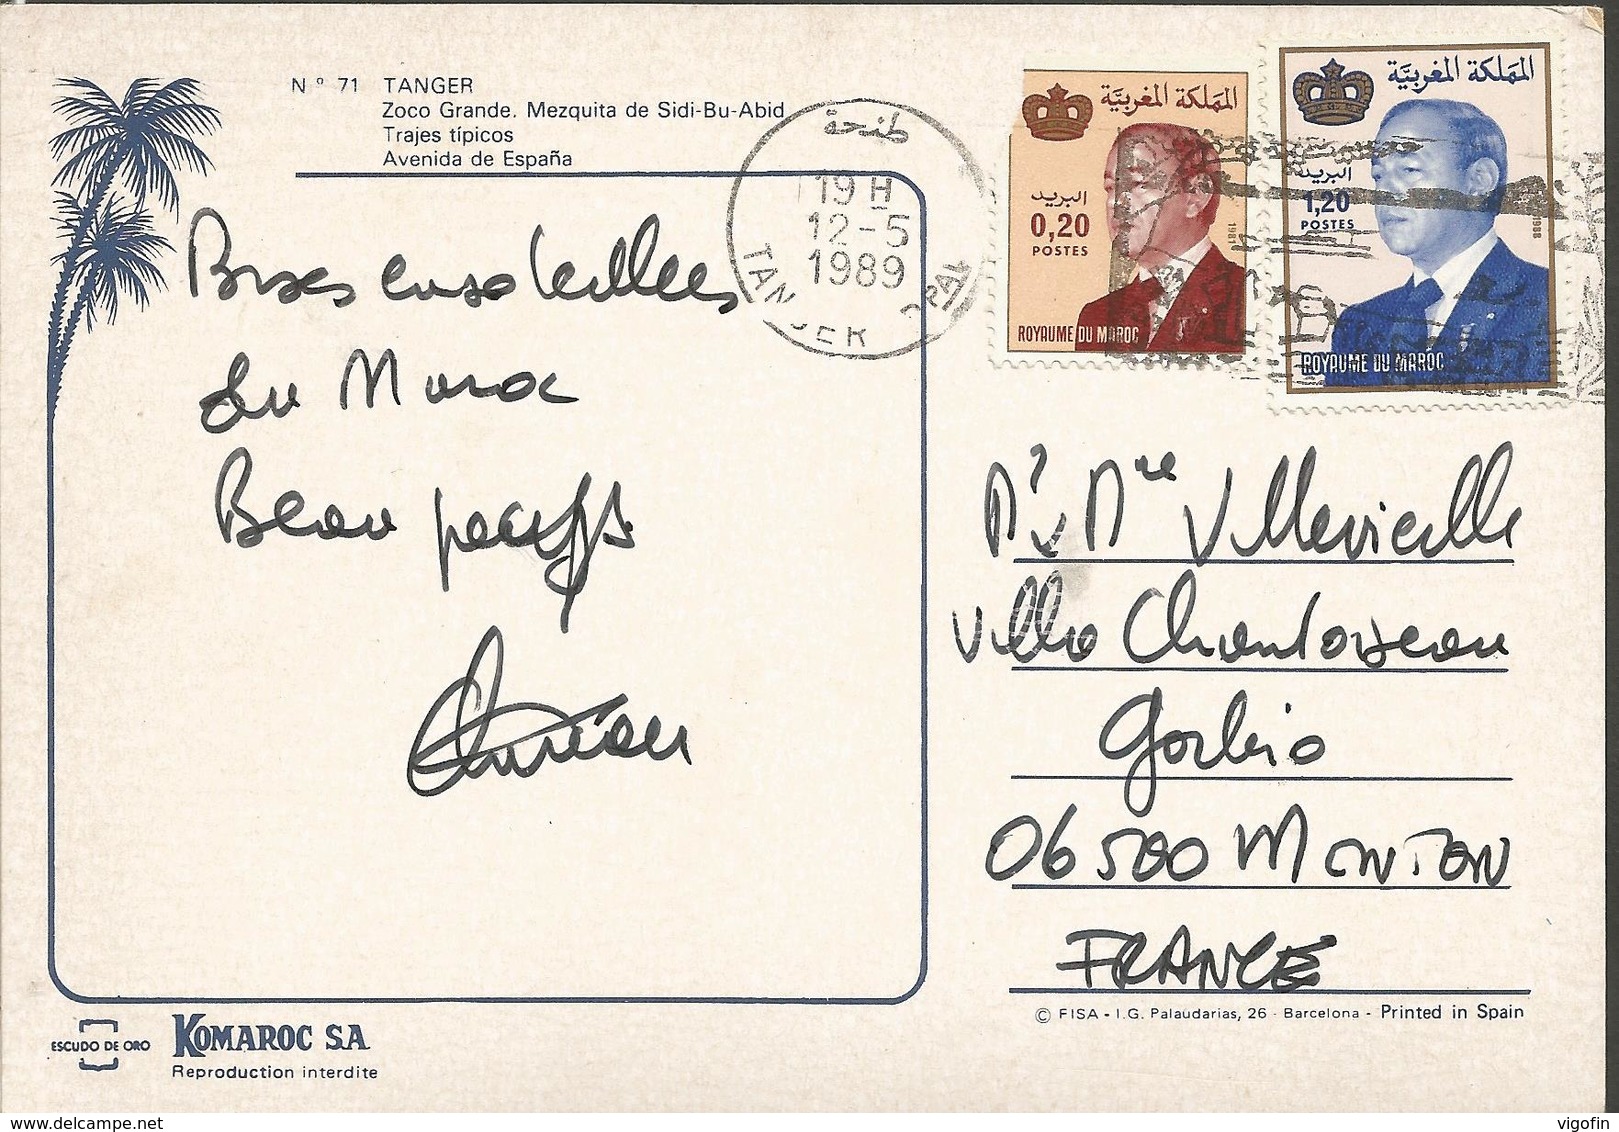 Nº 71 TANGER
Zoco Grande. Mezquita de Sidi-Bu-Abid
Trajes típicos
Avenida de España
طنجة
19 H
12-5
1989
TANGER
المملكة المغربية
البريد
0,20
POSTES
1987
ROYAUME DU MAROC
المملكة المغربية
البريد
1,20
POSTES
1988
ROYAUME DU MAROC
Bises ensoleillées
du Maroc
Beau pays
Mr & Mme Villevieille
Villa Chantoiseau
Gorbio
06500 MENTON
FRANCE
© FISA - I.G. Palaudarias, 26 - Barcelona - Printed in Spain
ESCUDO DE ORO
KOMAROC S.A.
Reproduction interdite
vigofin